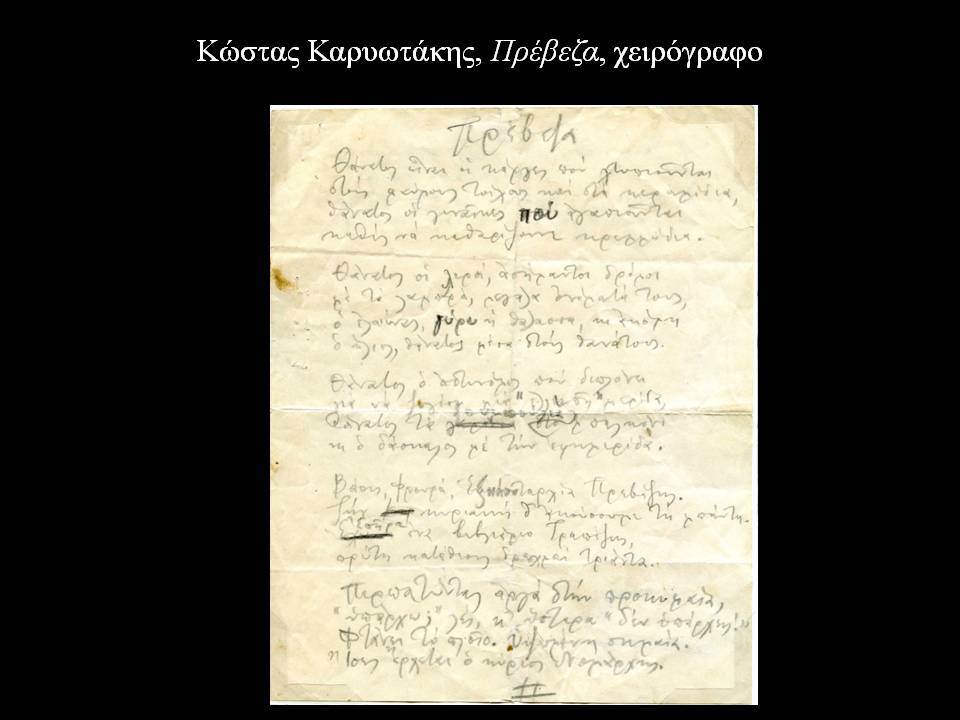 Κώστας Καρυωτάκης, Πρέβεζα, χειρόγραφο
Πρέβεζα
Θάνατος εἶναι οἱ κάργες ποὺ χτυπιοῦνται
στοὺς μαύρους τοίχους καὶ στὰ κεραμίδια,
θάνατος οἱ γυναῖκες ποὺ ἀγαπιοῦνται
καθὼς νὰ καθαρίζουνε κρεμμύδια.
Θάνατος οἱ λεροί, ἀσήμαντοι δρόμοι
μὲ τὰ λαμπρά, μεγάλα ὀνόματά τους,
ὁ ἐλαιώνας, γύρω ἡ θάλασσα, κι ἀκόμη
ὁ ἥλιος, θάνατος μέσα στοὺς θανάτους.
Θάνατος ὁ ἀστυνόμος ποὺ διπλώνει
γιὰ νὰ ζυγίσῃ μιὰ "ἐλλιπῆ" μερίδα,
θάνατος τὰ στὸ μπαλκόνι
κι ὁ δάσκαλος μὲ τὴν ἐφημερίδα.
Βάσις, Φρουρά, Ἑξηκονταρχία Πρεβέζης.
Τὴν κυριακὴ θ' ἀκούσουμε τὴ μπάντα.
Ἐπῆρα ἕνα βιβλιάριο Τραπέζης,
πρώτη κατάθεσις δραχμαὶ τριάντα.
Περπατώντας ἀργὰ στὴν προκυμαία,
"ὑπάρχω;" λές, κι' ὕστερα "δὲν ὑπάρχεις!"
Φτάνει τὸ πλοῖο. Ὑψωμένη σημαία.
Ἴσως ἔρχεται ὁ κύριος Νομάρχης.